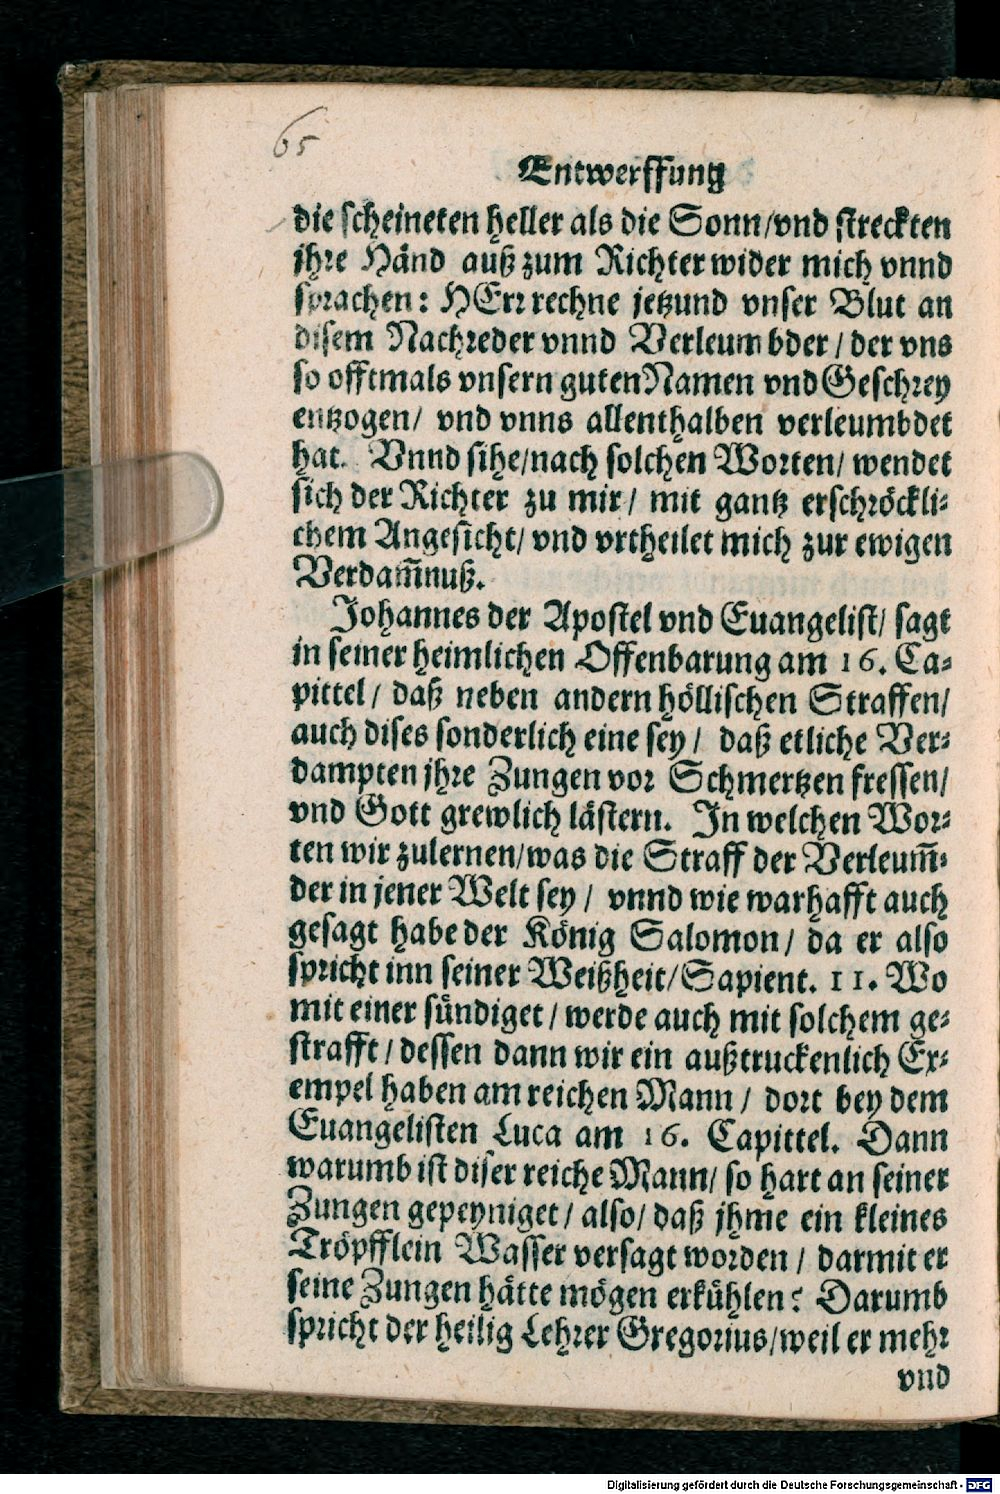 65
Entwerffung
die scheineten heller als die Sonn/vnd streckten
jhre Händ auß zum Richter wider mich vnnd
sprachen: HErr rechne jetzund vnser Blut an
disem Nachreder vnnd Verleumbder / der vns
so offtmals vnsern guten Namen vnd Geschrey
entzogen/ vnd vnns allenthalben verleumbdet
hat. Vnnd sihe/nach solchen Worten/ wendet
sich der Richter zu mir/ mit gantz erschröckli-
chem Angesicht/ vnd vrtheilet mich zur ewigen
Verdam̃nuß.
Johannes der Apostel vnd Euangelist/ sagt
in seiner heimlichen Offenbarung am 16. Ca-
pittel / daß neben andern höllischen Straffen/
auch dises sonderlich eine sey / daß etliche Ver-
dampten jhre Zungen vor Schmertzen fressen/
vnd Gott grewlich lästern. In welchen Wor-
ten wir zulernen/was die Straff der Verleum̃-
der in jener Welt sey / vnnd wie warhafft auch
gesagt habe der König Salomon/ da er also
spricht inn seiner Weißheit/Sapient. 11. Wo
mit einer sündiget / werde auch mit solchem ge-
strafft / dessen dann wir ein außtruckenlich Ex-
empel haben am reichen Mann / dort bey dem
Euangelisten Luca am 16. Capittel. Dann
warumb ist diser reiche Mann/ so hart an seiner
Zungen gepeyniget / also/ daß jhme ein kleines
Tröpfflein Wasser versagt worden / darmit er
seine Zungen hätte mögen erkühlen? Darumb
spricht der heilig Lehrer Gregorius/weil er mehr
vnd
Digitalisierung gefördert durch die Deutsche Forschungsgemeinschaft - DFG